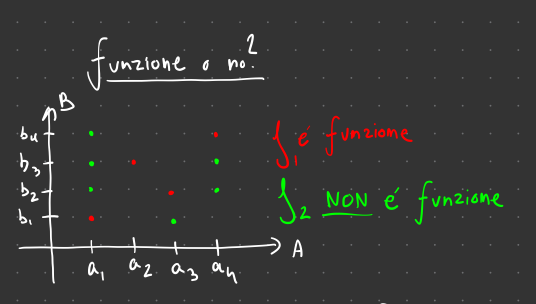 funzione o no?
B
b4
b3
b2
b1
a1 a2 a3 a4
A
f1 é funzione
f2 NON é funzione